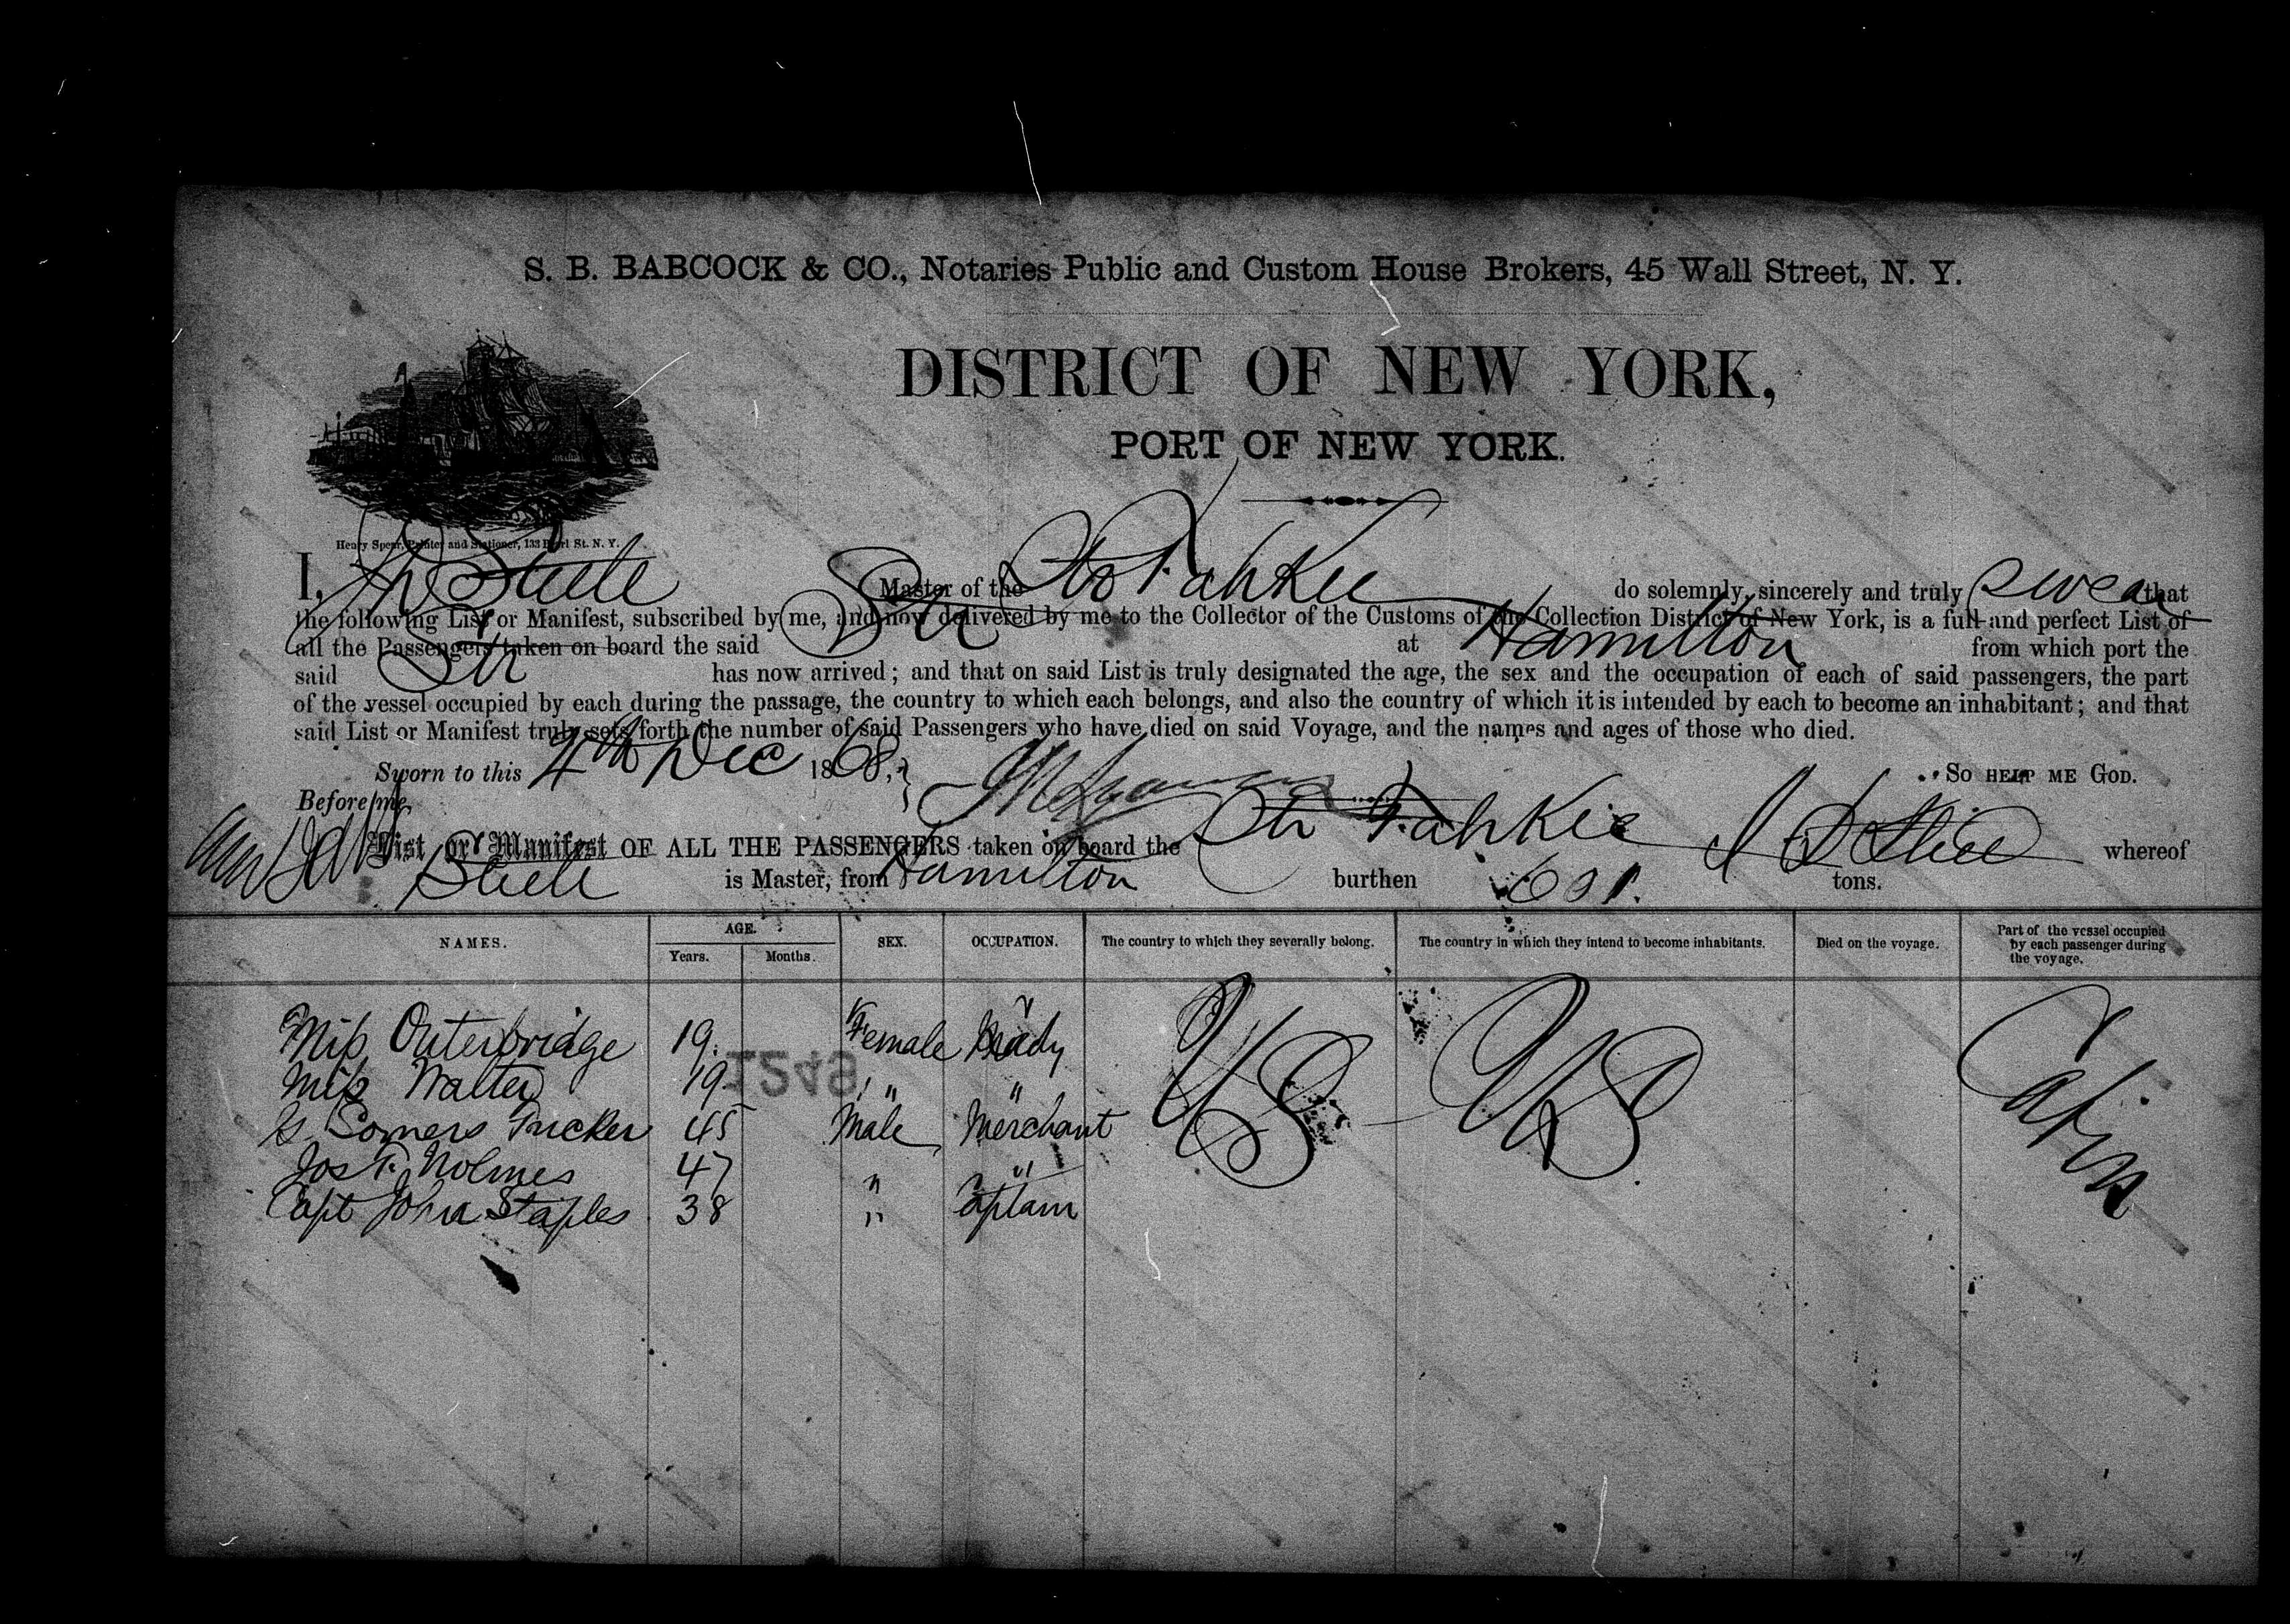 S. B. BABCOCK & CO., Notaries Public and Custom House Brokers, 45 Wall Street, N. Y.
DISTRICT OF NEW YORK,
PORT OF NEW YORK.
Henry Spear, Printer and Stationer, 133 Pearl St. N. Y.
I, Steele Master of the Str Fah Kee do solemnly, sincerely and truly swear that
the following List or Manifest, subscribed by me, and now delivered by me to the Collector of the Customs of the Collection District of New York, is a full and perfect List of
all the Passengers taken on board the said Str at Hamilton from which port the
said Str has now arrived; and that on said List is truly designated the age, the sex and the occupation of each of said passengers, the part
of the vessel occupied by each during the passage, the country to which each belongs, and also the country of which it is intended by each to become an inhabitant; and that
said List or Manifest truly sets forth the number of said Passengers who have died on said Voyage, and the names and ages of those who died.
Sworn to this 4th Dec 1868, So HELP ME GOD.
Before me
List or Manifest OF ALL THE PASSENGERS taken on board the Str Fah Kee whereof
Steele is Master, from Hamilton burthen 601. tons.
NAMES. AGE. Years. Months. SEX. OCCUPATION. The country to which they severally belong. The country in which they intend to become inhabitants. Died on the voyage. Part of the vessel occupied by each passenger during the voyage.
Miss Outerbridge 19. Female Lady US US Cabin
Miss Walter 19 " "
Somers Tucker 45 Male Merchant
Jos T. Holmes 47 " "
Capt John Staples 38 " Captain
1249